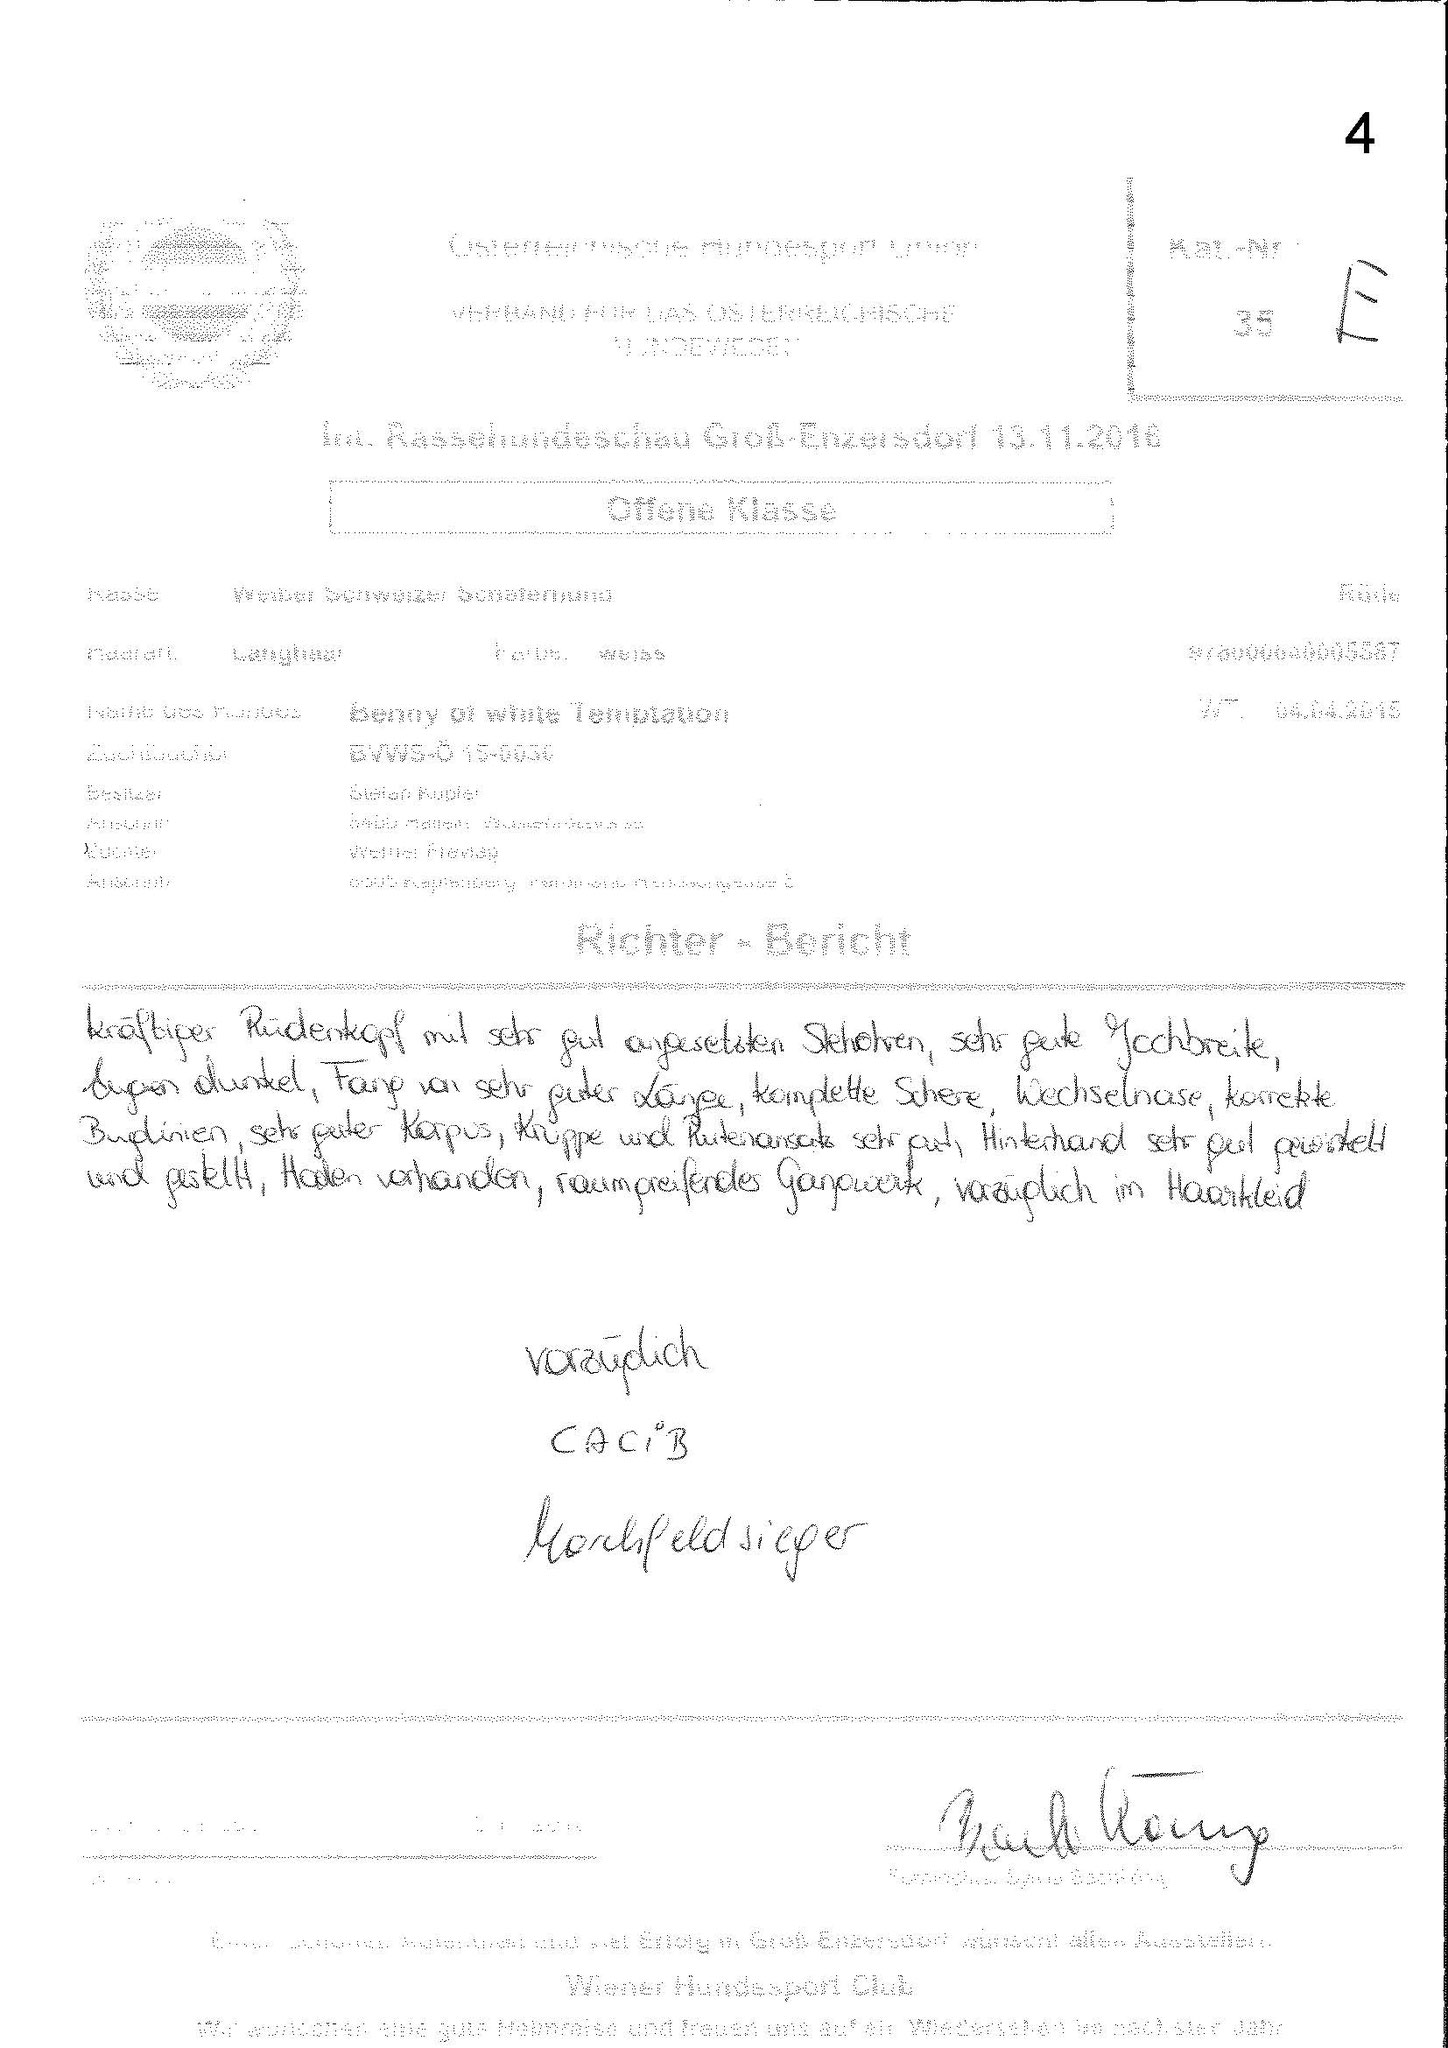 4
Österreichische Hundesport Union
Kat.-Nr.
35
E
VERBAND FÜR DAS ÖSTERREICHISCHE
HUNDEWESEN
Int. Rassehundeschau Groß-Enzersdorf 13.11.2016
Offene Klasse
Rasse Weißer Schweizer Schäferhund Rüde
Haarart: Langhaar Farbe: weiss
Name des Hundes Benny of white Temptation WT. 04.04.2015
Zuchtbuchnr BVWS-Ö 15-0036
Besitzer Stefan Kupfer
Anschrift 5400 Hallein
Züchter Werner Freytag
Anschrift Kapfenberg
Richter - Bericht
kräftiger Rüdenkopf mit sehr gut angesetzten Stehohren, sehr gute Jochbreite,
Augen dunkel, Fang von sehr guter Länge, komplette Schere, Wechselnase, korrekte
Buglinien, sehr guter Korpus, Kruppe und Rutenansatz sehr gut, Hinterhand sehr gut gewinkelt
und gestellt, Hoden vorhanden, raumgreifendes Gangwerk, vorzüglich im Haarkleid
vorzüglich
CACiB
Marchfeldsieger
Einen schönen Aufenthalt und viel Erfolg in Groß Enzersdorf wünscht allen Ausstellern
Wiener Hundesport Club
Wir wünschen eine gute Heimreise und freuen uns auf ein Wiedersehen im nächsten Jahr